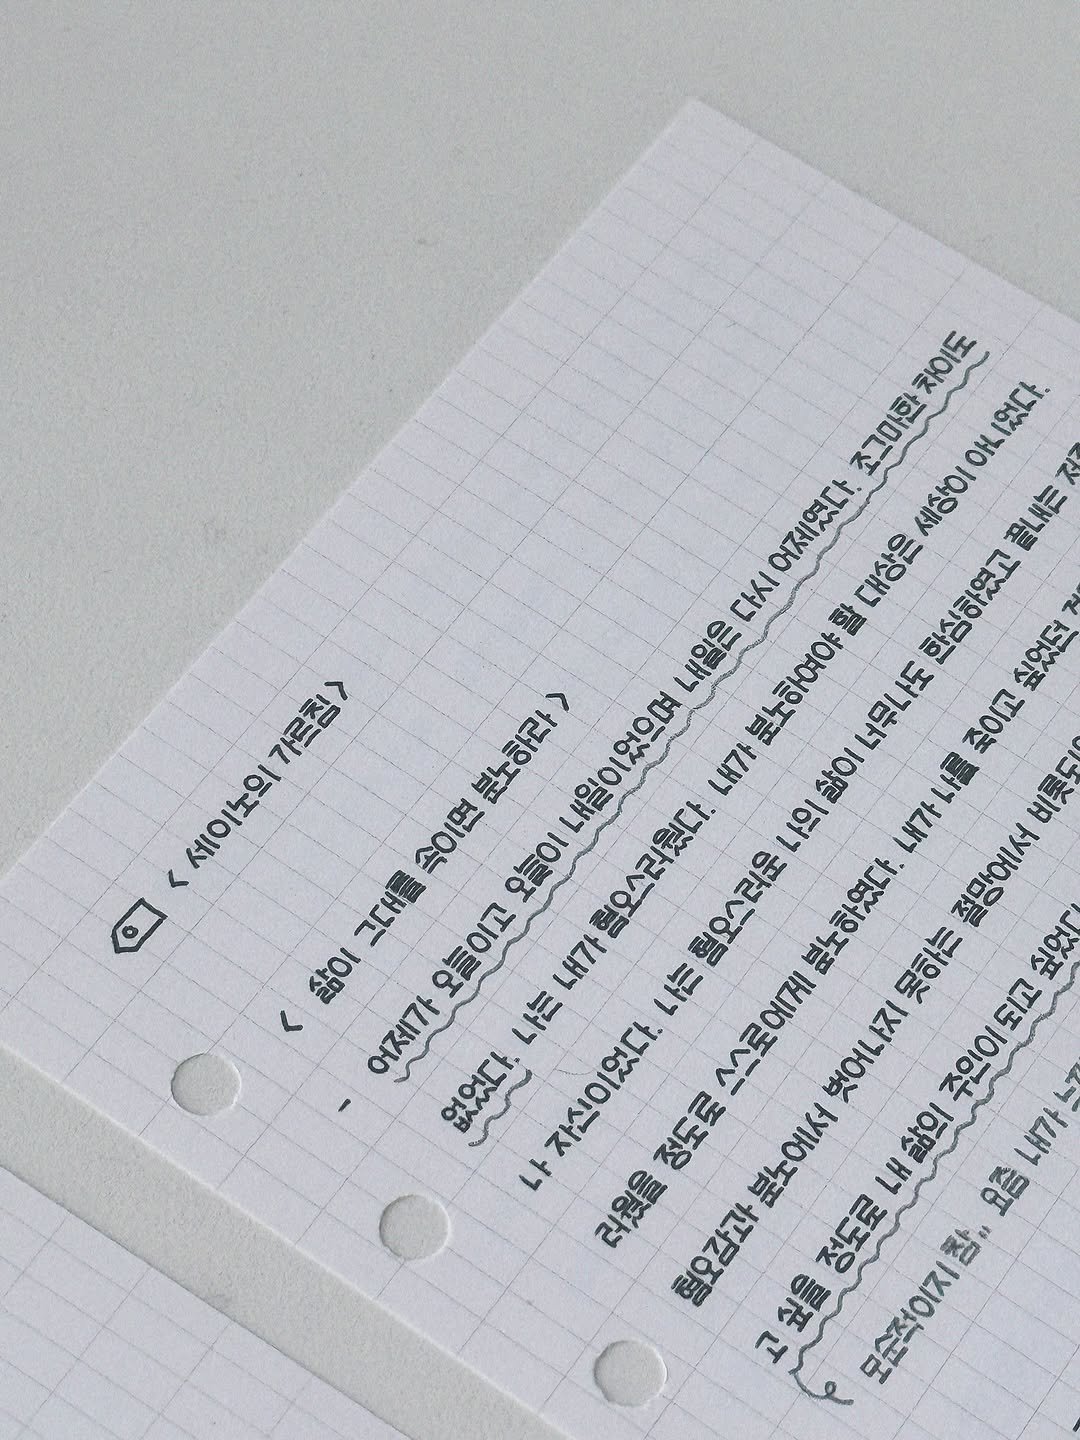 < 세이노의 가르침 >
< 삶이 그대를 속이면 분노하라 >
- 어제가 오늘이고 오늘이 내일이었으며 내일은 다시 어제였다. 조그마한 차이도
없었다. 나는 내가 혐오스러웠다. 내가 분노하여야 할 대상은 세상이 아니었다.
나 자신이었다. 나는 혐오스러운 나의 삶이 너무나도 한심하였고 끝내는
러웠을 정도로 스스로에게 분노하였다. 내가 나를 죽이고 싶었던
혐오감과 분노에서 벗어나지 못하는 절망에서
고 싶을 정도로 내 삶의 주인이 되고 싶었다
모순적이지 참.. 요즘 내가